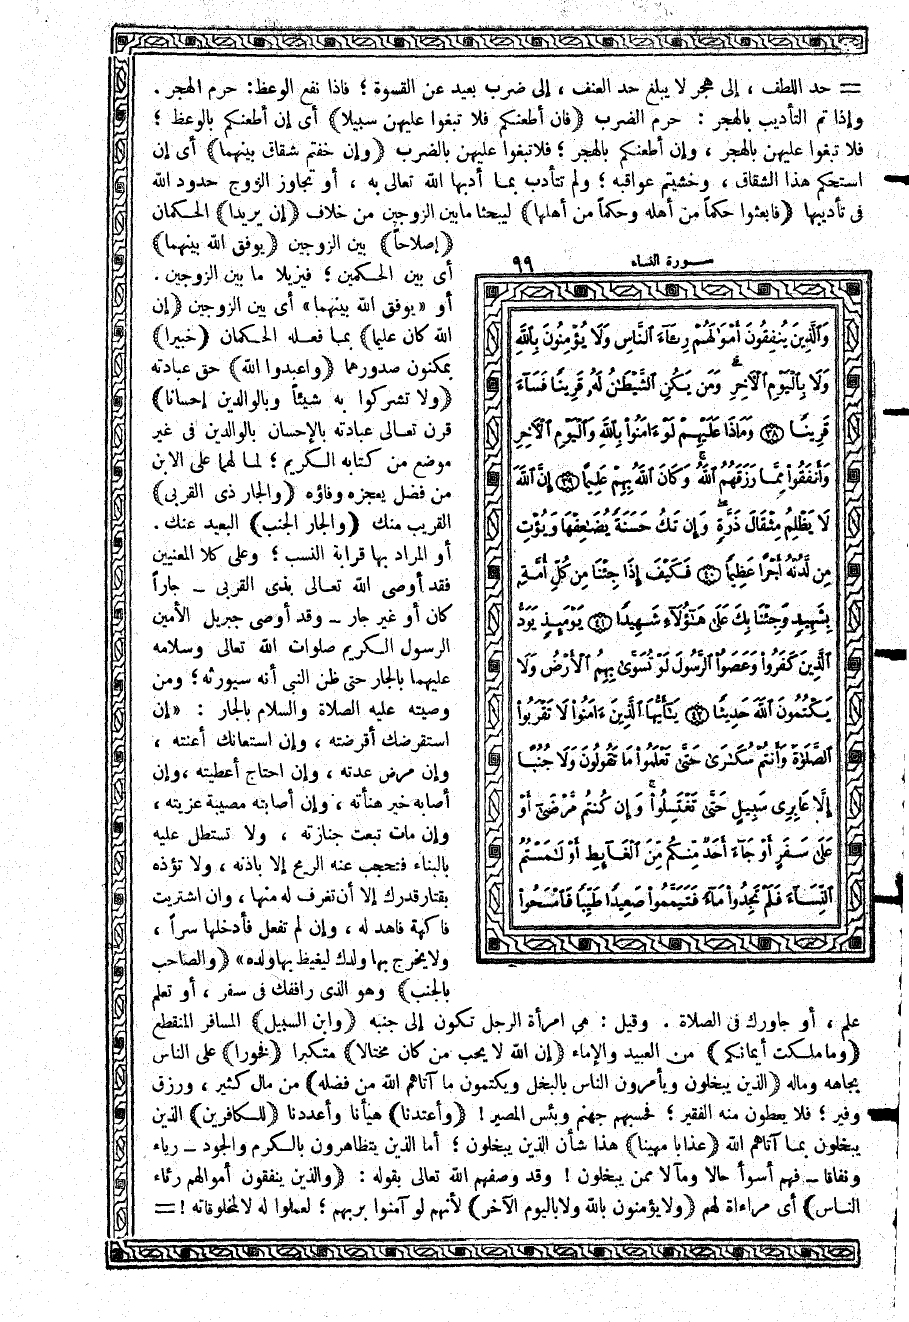 = حد اللطف ، إلى هجر لا يبلغ حد العنف ، إلى ضرب بعيد عن القسوة ؛ فاذا نفع الوعظ : حرم الهجر .
وإذا تم التأديب بالهجر : حرم الضرب (فان أطعنكم فلا تبغوا عليهن سبيلا) أى إن أطعنكم بالوعظ ؛
فلا تبغوا عليهن بالهجر ، وإن أطعنكم بالهجر ؛ فلاتبغوا عليهن بالضرب (وإن خفتم شقاق بينهما) أى إن
استحكم هذا الشقاق ، وخشيتم عواقبه ؛ ولم تتأدب بما أدبها الله تعالى به ، أو تجاوز الزوج حدود الله
فى تأديبها (فابعثوا حكماً من أهله وحكماً من أهلها) ليبحثا مابين الزوجين من خلاف (إن يريدا) الحكمان
(إصلاحاً) بين الزوجين (يوفق الله بينهما)
أى بين الحكمين ؛ فيزيلا ما بين الزوجين .
أو «يوفق الله بينهما» أى بين الزوجين (إن
الله كان عليما) بما فعله الحكمان (خبيرا)
بمكنون صدورهما (واعبدوا الله) حق عبادته
(ولا تشركوا به شيئاً وبالوالدين إحسانا)
قرن تعالى عبادته بالإحسان بالوالدين فى غير
موضع من كتابه الكريم ؛ لما لهما على الابن
من فضل يعجزه وفاؤه (والجار ذى القربى)
القريب منك (والجار الجنب) البعيد عنك .
أو المراد بها قرابة النسب ؛ وعلى كلا المعنيين
فقد أوصى الله تعالى بذى القربى ـ جاراً
كان أو غير جار ـ وقد أوصى جبريل الأمين
الرسول الكريم صلوات الله تعالى وسلامه
عليهما بالجار حتى ظن النبى أنه سيورثه ؛ ومن
وصيته عليه الصلاة والسلام بالجار : «إن
استقرضك أقرضته ، وإن استعانك أعنته ،
وإن مرض عدته ، وإن احتاج أعطيته ، وإن
أصابه خير هنأته ، وإن أصابته مصيبة عزيته ،
وإن مات تبعت جنازته ، ولا تستطل عليه
بالبناء فتحجب عنه الريح إلا باذنه ، ولا تؤذه
بقتار قدرك إلا أن تغرف له منها ، وان اشتريت
فاكهة فاهد له ، وإن لم تفعل فأدخلها سراً ،
ولايخرج بها ولدك ليغيظ بها ولده» (والصاحب
بالجنب) وهو الذى رافقك فى سفر ، أو تعلم
سورة النساء ٩٩
وَالَّذِينَ يُنفِقُونَ أَمْوَٰلَهُمْ رِئَآءَ النَّاسِ وَلَا يُؤْمِنُونَ بِاللَّهِ
وَلَا بِالْيَوْمِ الْآخِرِ ۗ وَمَن يَكُنِ الشَّيْطَٰنُ لَهُۥ قَرِينًا فَسَآءَ
قَرِينًا ٣٨ وَمَاذَا عَلَيْهِمْ لَوْ ءَامَنُوا بِاللَّهِ وَالْيَوْمِ الْآخِرِ
وَأَنفَقُوا مِمَّا رَزَقَهُمُ اللَّهُ ۚ وَكَانَ اللَّهُ بِهِمْ عَلِيمًا ٣٩ إِنَّ اللَّهَ
لَا يَظْلِمُ مِثْقَالَ ذَرَّةٍ ۖ وَإِن تَكُ حَسَنَةً يُضَٰعِفْهَا وَيُؤْتِ
مِن لَّدُنْهُ أَجْرًا عَظِيمًا ٤٠ فَكَيْفَ إِذَا جِئْنَا مِن كُلِّ أُمَّةٍ
بِشَهِيدٍ وَجِئْنَا بِكَ عَلَىٰ هَٰٓؤُلَآءِ شَهِيدًا ٤١ يَوْمَئِذٍ يَوَدُّ
الَّذِينَ كَفَرُوا وَعَصَوُا الرَّسُولَ لَوْ تُسَوَّىٰ بِهِمُ الْأَرْضُ وَلَا
يَكْتُمُونَ اللَّهَ حَدِيثًا ٤٢ يَٰٓأَيُّهَا الَّذِينَ ءَامَنُوا لَا تَقْرَبُوا
الصَّلَوٰةَ وَأَنتُمْ سُكَٰرَىٰ حَتَّىٰ تَعْلَمُوا مَا تَقُولُونَ وَلَا جُنُبًا
إِلَّا عَابِرِى سَبِيلٍ حَتَّىٰ تَغْتَسِلُوا ۚ وَإِن كُنتُم مَّرْضَىٰٓ أَوْ
عَلَىٰ سَفَرٍ أَوْ جَآءَ أَحَدٌ مِّنكُم مِّنَ الْغَآئِطِ أَوْ لَٰمَسْتُمُ
النِّسَآءَ فَلَمْ تَجِدُوا مَآءً فَتَيَمَّمُوا صَعِيدًا طَيِّبًا فَامْسَحُوا
علم ، أو جاورك فى الصلاة . وقيل : هى امرأة الرجل تكون إلى جنبه (وابن السبيل) المسافر المنقطع
(وما ملكت أيمانكم) من العبيد والإماء (إن الله لا يحب من كان مختالا) متكبرا (فخورا) على الناس
بجاهه وماله (الذين يبخلون ويأمرون الناس بالبخل ويكتمون ما آتاهم الله من فضله) من مال كثير ، ورزق
وفير ؛ فلا يعطون منه الفقير ؛ فحسبهم جهنم وبئس المصير ! (وأعتدنا) هيأنا وأعددنا (للكافرين) الذين
يبخلون بما آتاهم الله (عذابا مهينا) هذا شأن الذين يبخلون ؛ أما الذين يتظاهرون بالكرم والجود ـ رياء
ونفاقا ـ فهم أسوأ حالا ومآلا ممن يبخلون ! وقد وصفهم الله تعالى بقوله : (والذين ينفقون أموالهم رئاء
الناس) أى مراءاة لهم (ولا يؤمنون بالله ولا باليوم الآخر) لأنهم لو آمنوا بربهم ؛ لعملوا له لا لمخلوقاته ! =